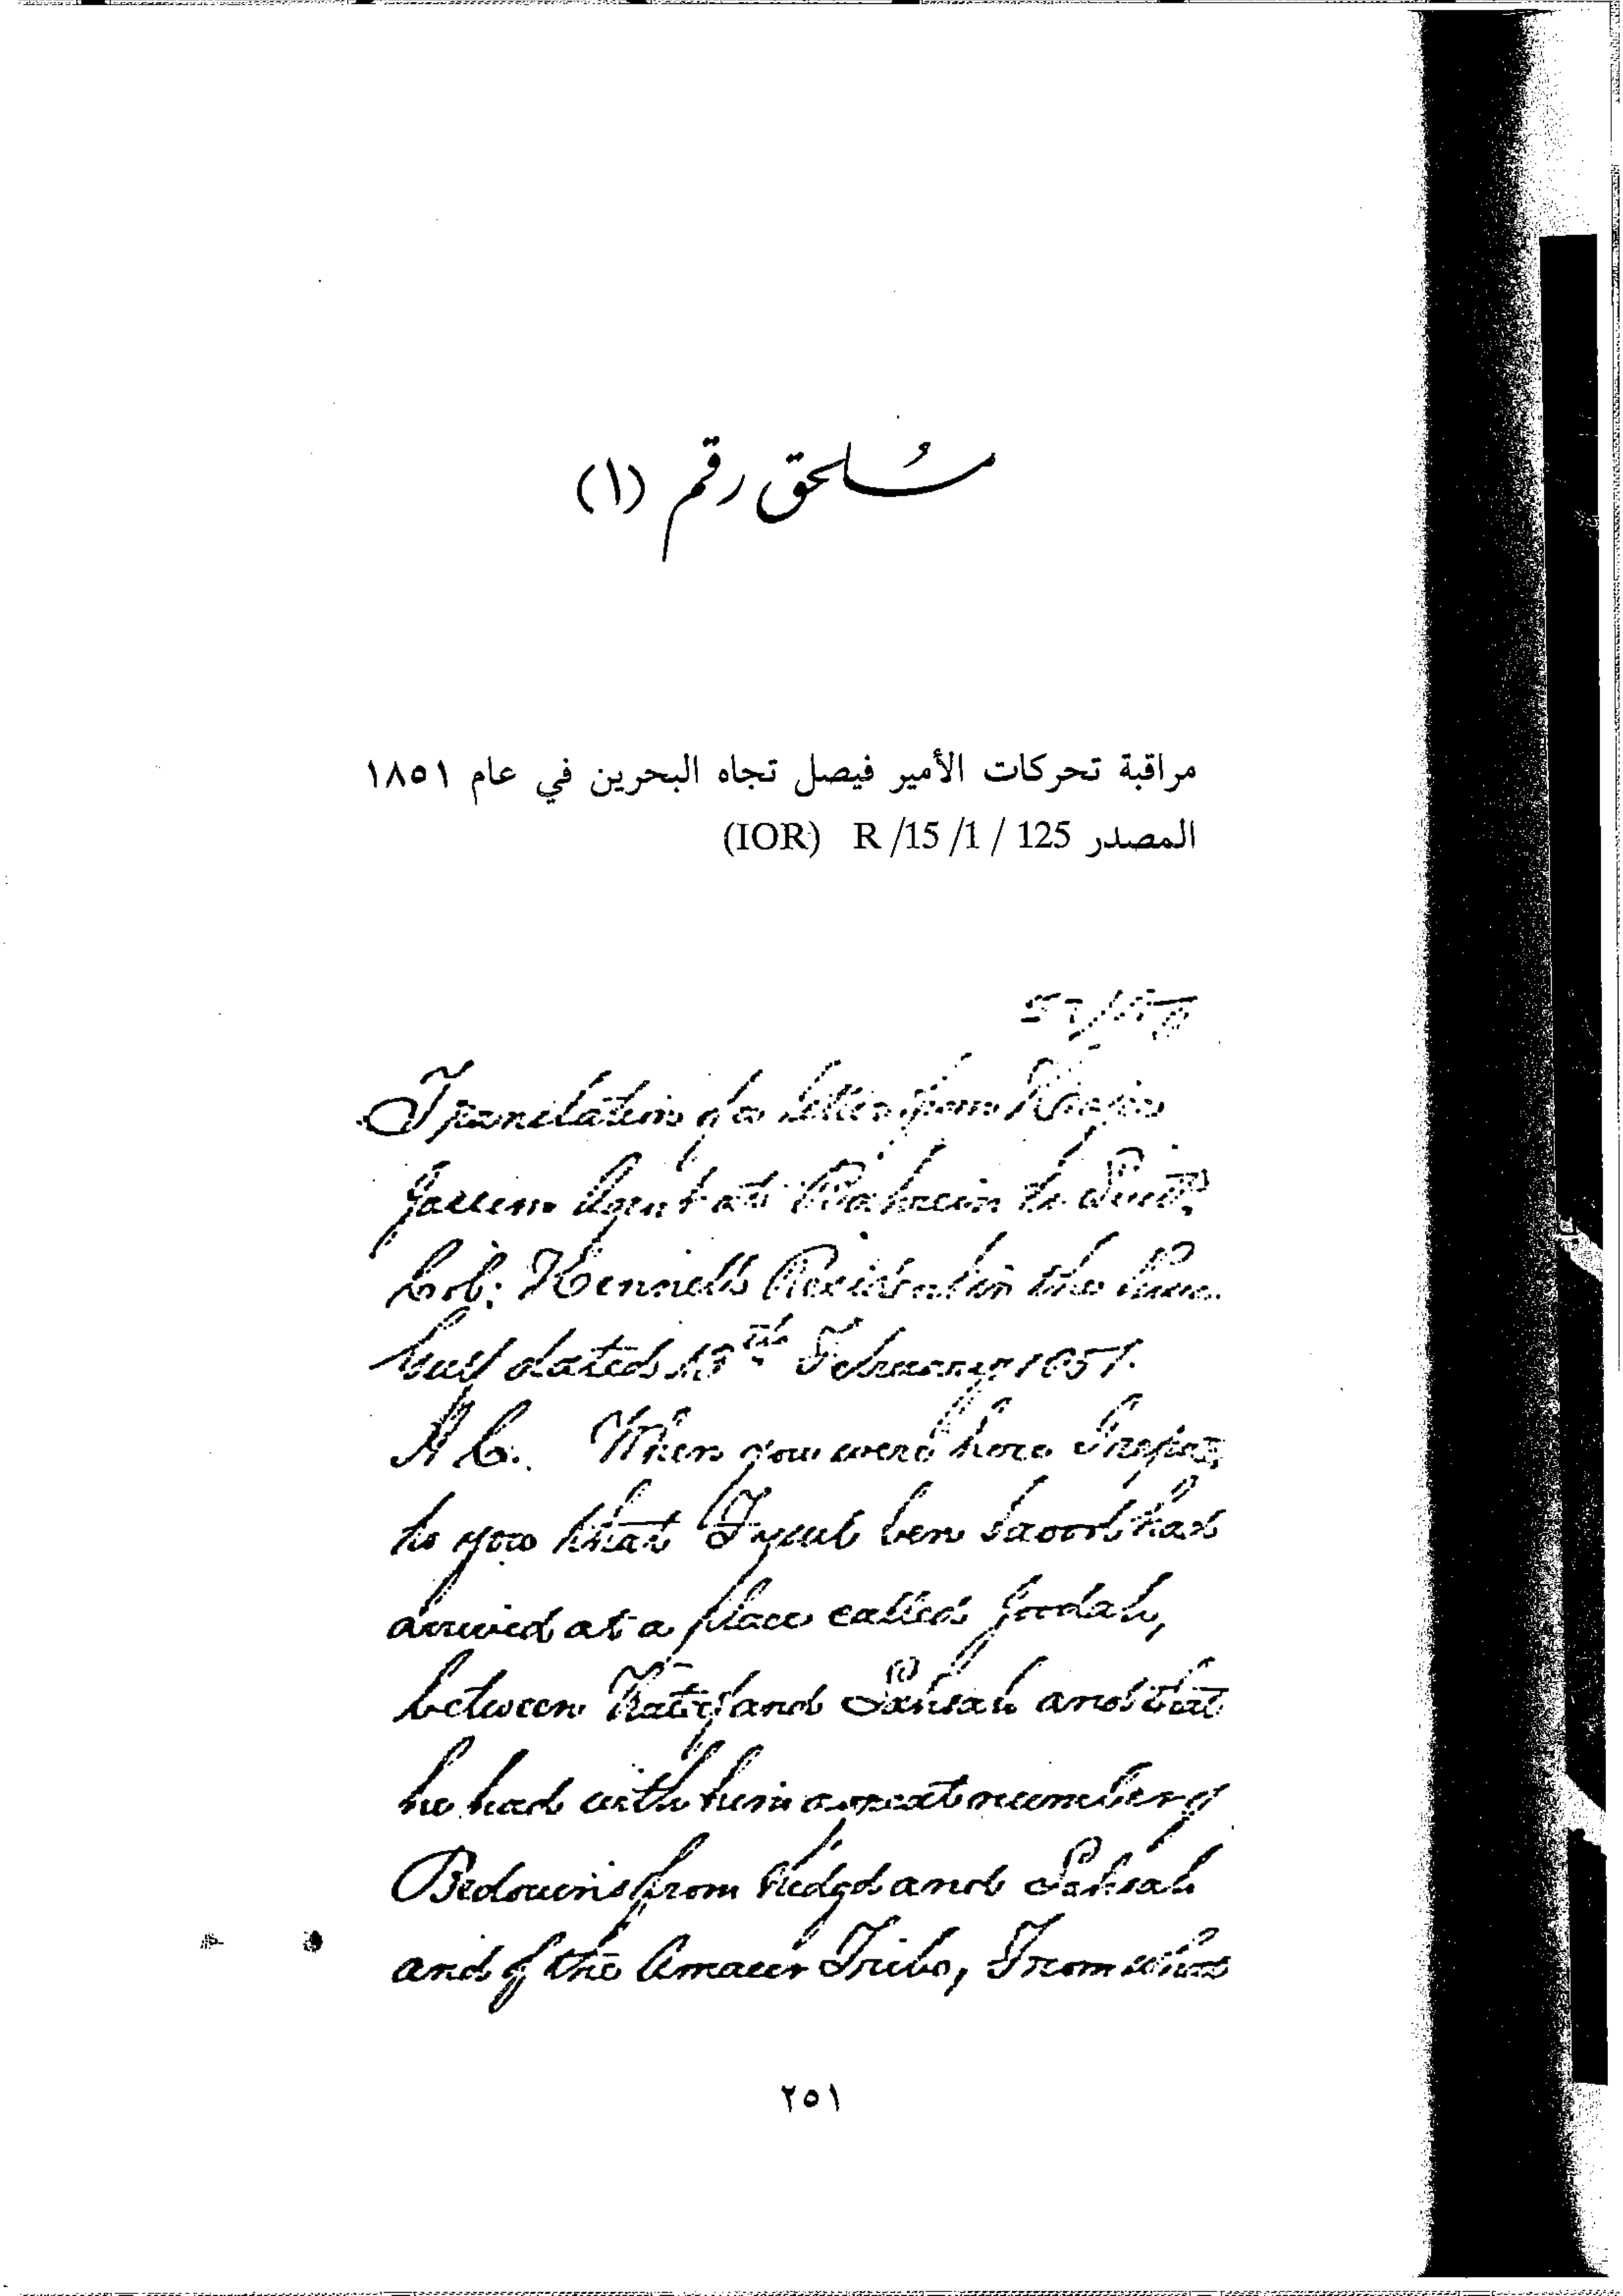 مُلحق رقم (١)
مراقبة تحركات الأمير فيصل تجاه البحرين في عام ١٨٥١
المصدر R /15 /1 / 125 (IOR)
Translation of a letter from
Agent at Bahrein to Lieut.
Col: Hennell Resident in the
Gulf dated February 1851.
A C. When you were here
to you that Fysul ben Saood has
arrived at a place called Joodah,
between Katif and Lahsah and that
he had with him a great number of
Bedouins from Nedgd and Lahsah
and of the Amaeer Tribe, From
٢٥١